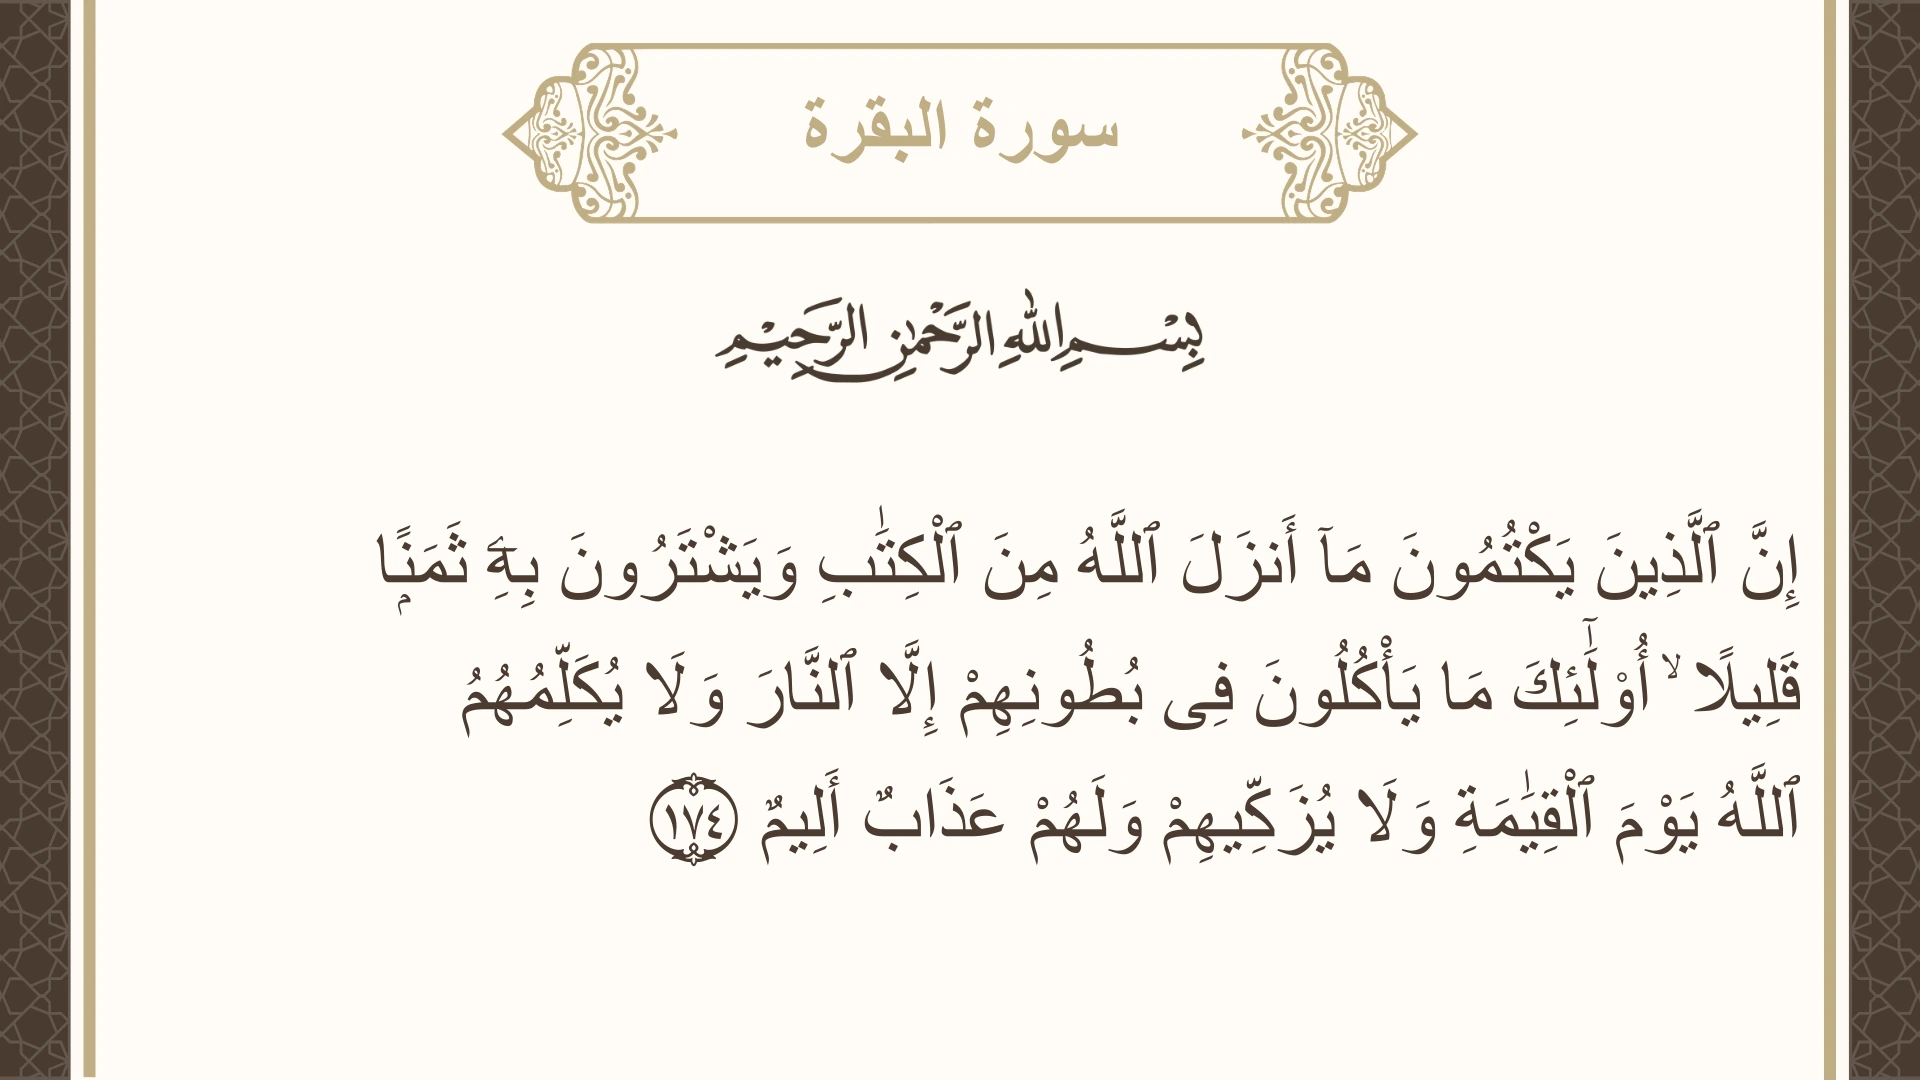 سورة البقرة
بِسْمِ اللهِ الرَّحْمٰنِ الرَّحِيْمِ
إِنَّ ٱلَّذِينَ يَكْتُمُونَ مَآ أَنزَلَ ٱللَّهُ مِنَ ٱلْكِتَـٰبِ وَيَشْتَرُونَ بِهِۦٓ ثَمَنًۭا
قَلِيلًا ۙ أُو۟لَـٰٓئِكَ مَا يَأْكُلُونَ فِى بُطُونِهِمْ إِلَّا ٱلنَّارَ وَلَا يُكَلِّمُهُمُ
ٱللَّهُ يَوْمَ ٱلْقِيَـٰمَةِ وَلَا يُزَكِّيهِمْ وَلَهُمْ عَذَابٌ أَلِيمٌ ١٧٤